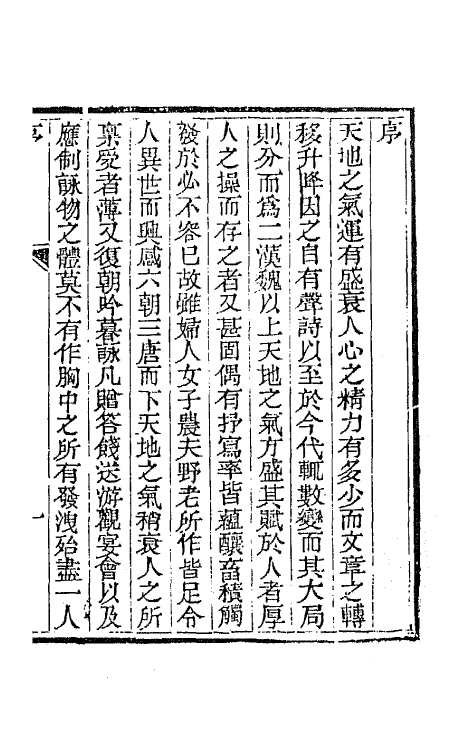 序
天地之氣運有盛衰人心之精力有多少而文章之轉
移升降因之自有聲詩以至於今代輒數變而其大局
則分而爲二漢魏以上天地之氣方盛其賦於人者厚
人之操而存之者又甚固偶有抒寫率皆蘊釀畜積觸
發於必不容已故雖婦人女子農夫野老所作皆足令
人異世而興感六朝三唐而下天地之氣稍衰人之所
稟受者薄又復朝吟暮詠凡贈答餞送游觀宴會以及
應制詠物之體莫不有作胸中之所有發洩殆盡一人
序
一